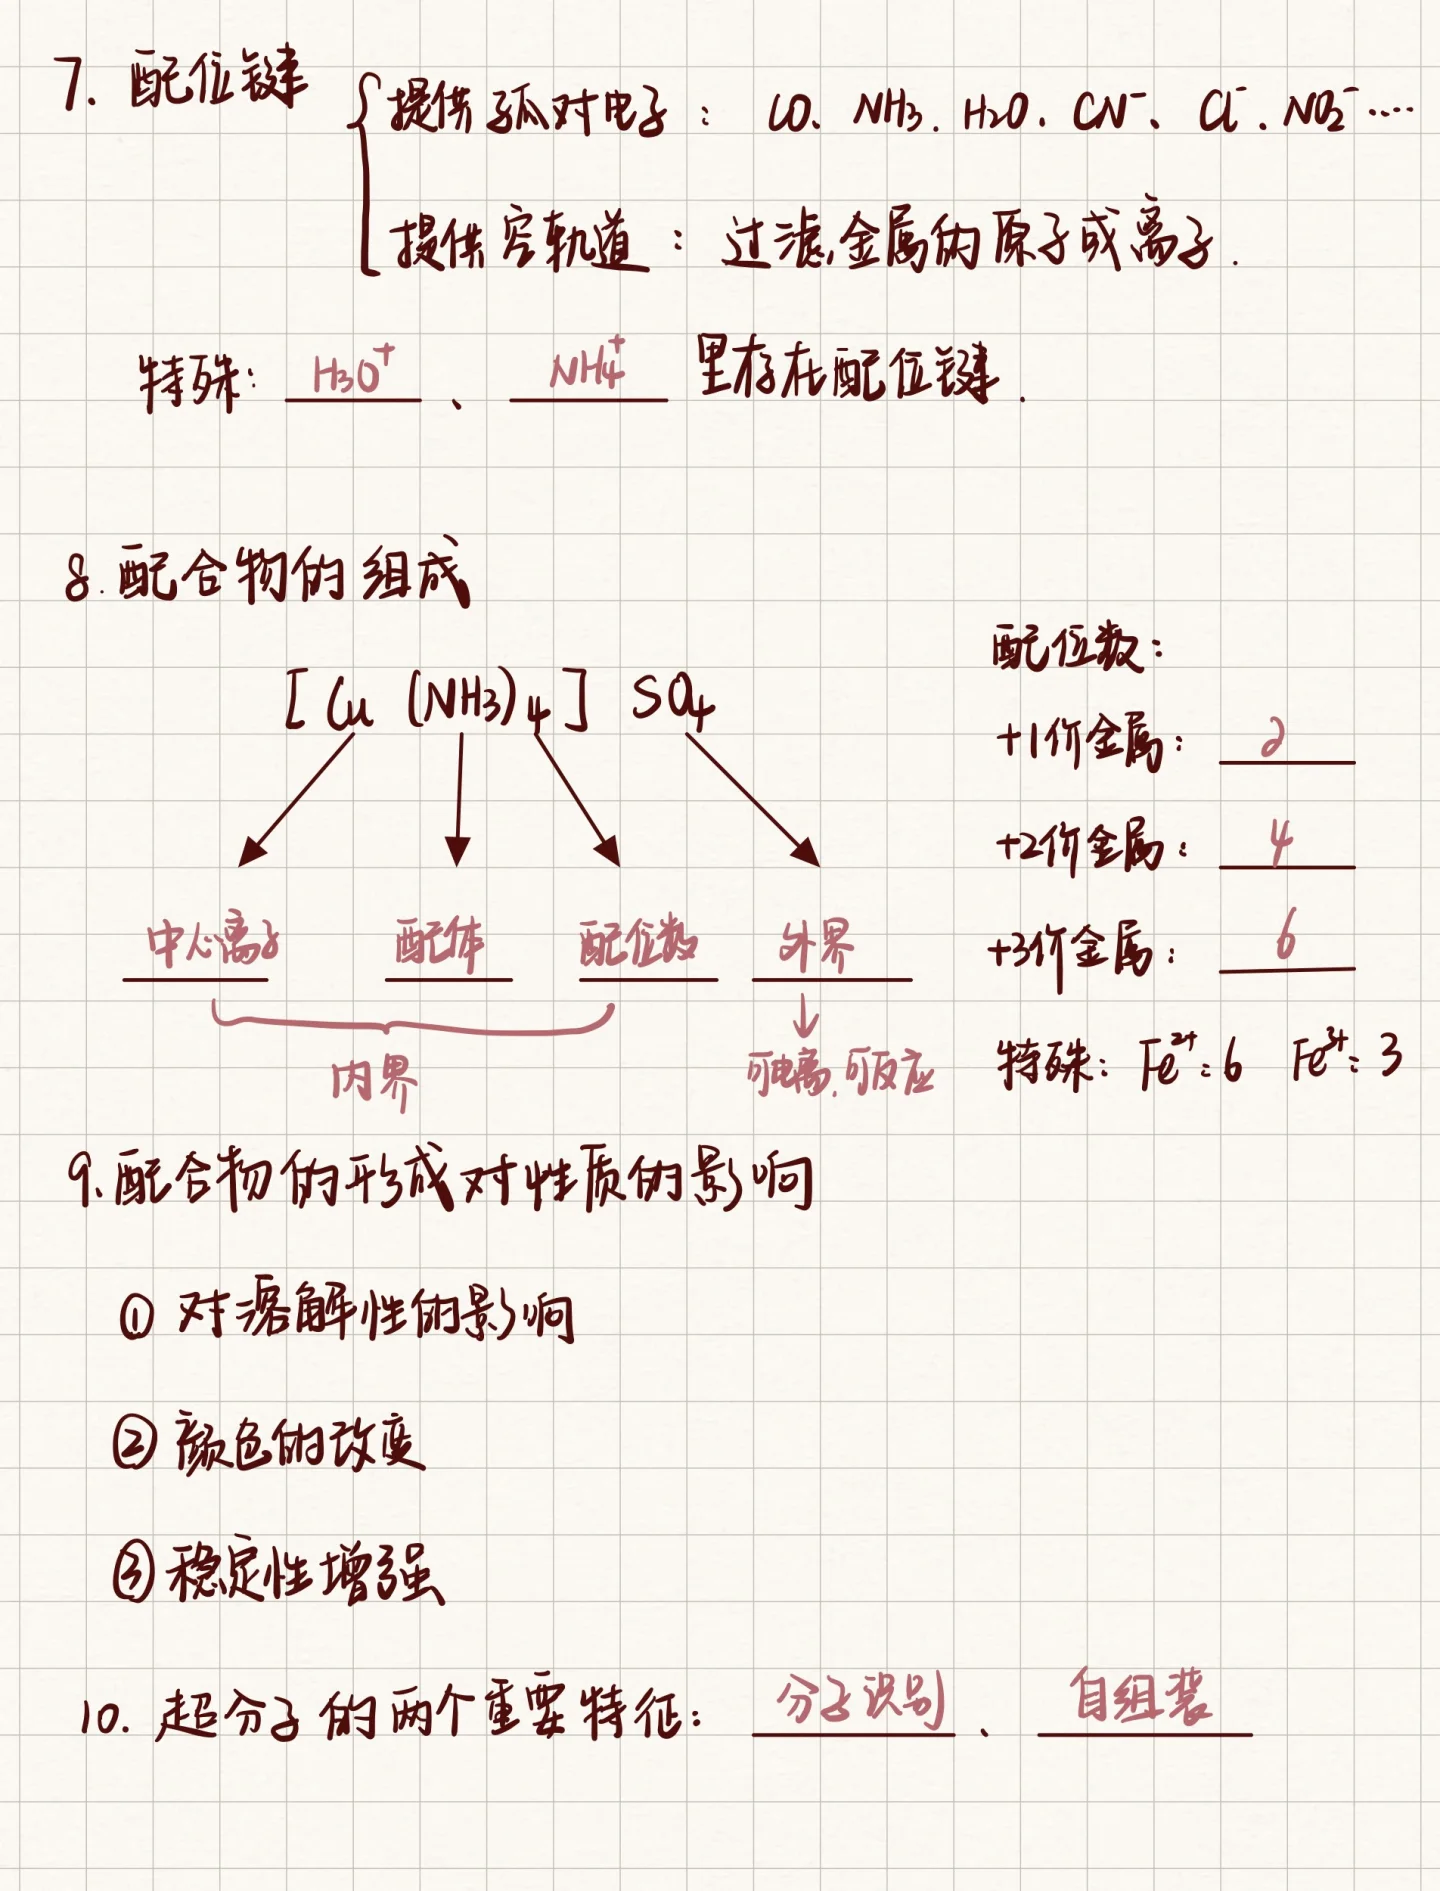 7. 配位键
提供孤对电子：CO、NH3、H2O、CN⁻、Cl⁻、NO2⁻……
提供空轨道：过滤金属的原子或离子.
特殊：H3O⁺、NH4⁺ 里存在配位键.
8. 配合物的组成
[Cu (NH3)4] SO4
中心离子 配体 配位数 外界
内界 可电离.可反应
配位数：
+1价金属：2
+2价金属：4
+3价金属：6
特殊：Fe²⁺：6 Fe³⁺：3
9、配合物的形成对性质的影响
① 对溶解性的影响
② 颜色的改变
③ 稳定性增强
10. 超分子的两个重要特征：分子识别、自组装